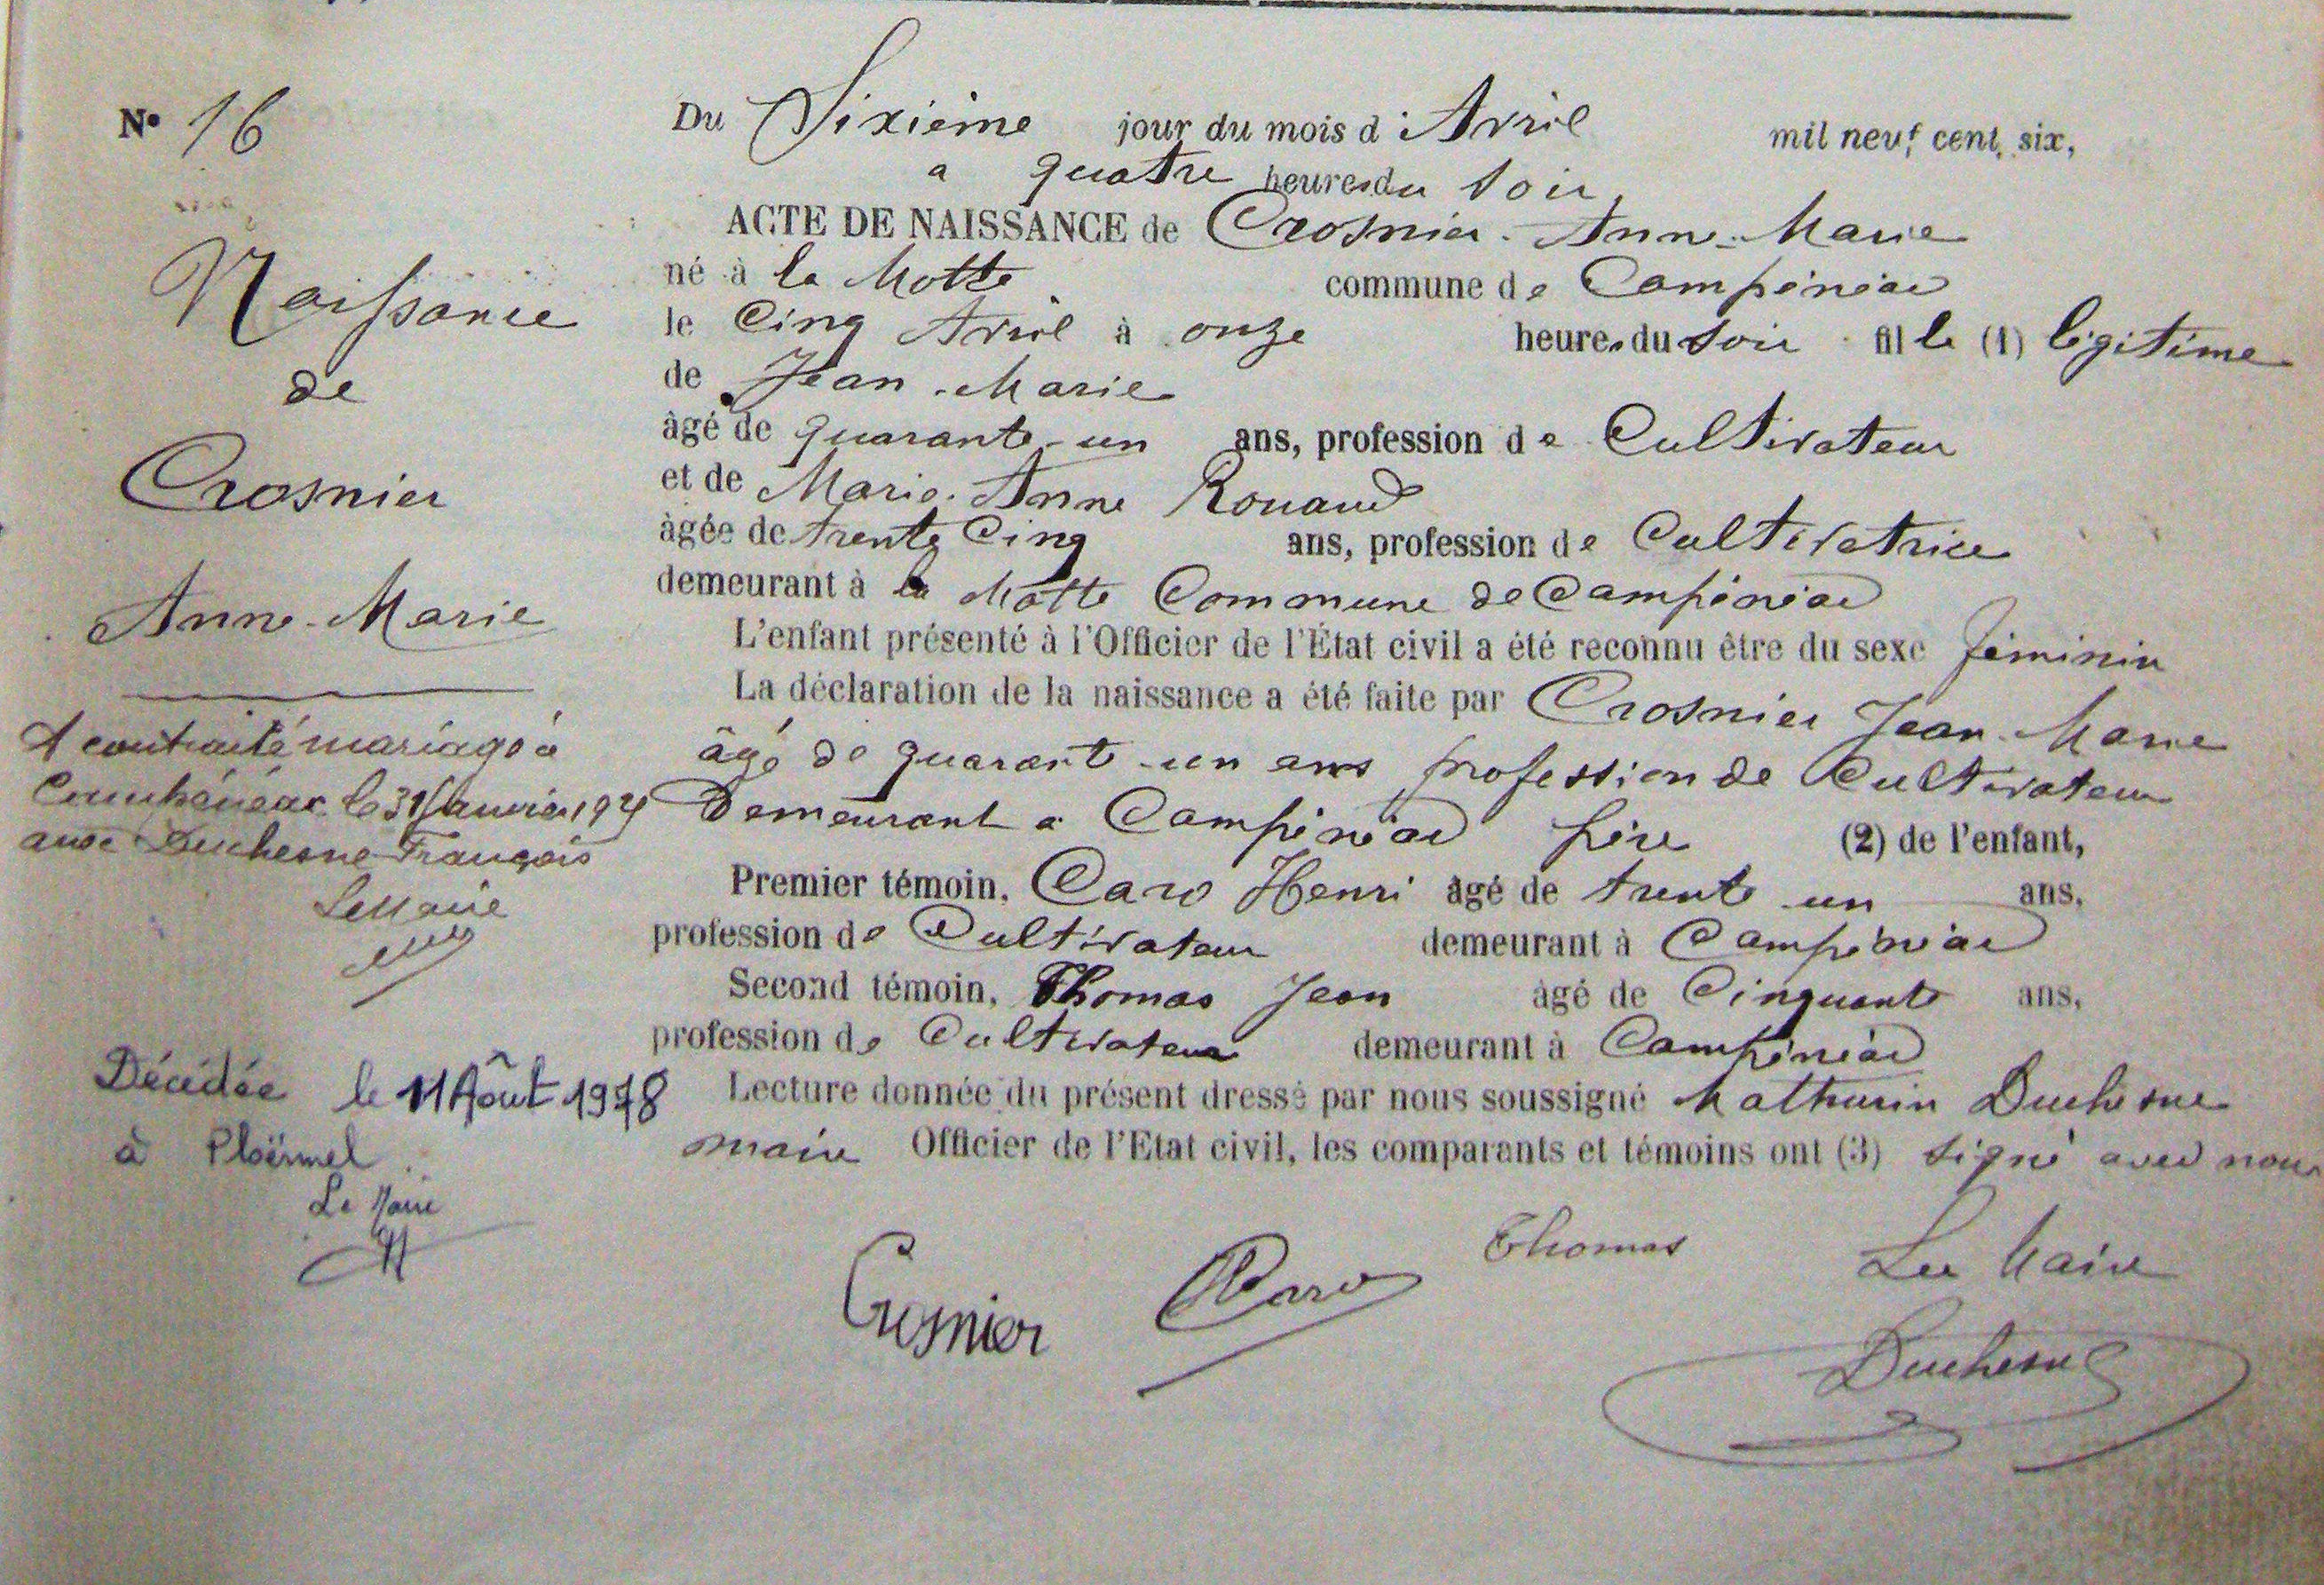 N° 16
Naissance
de
Crosnier
Anne-Marie
A contracté mariage à
Campénéac le 31 Janvier
avec Duchesne François
Le Maire
Décédée le 11 Août 1978
à Ploërmel
Le Maire
Du Sixième jour du mois d'Avril mil neuf cent six,
a quatre heures du soir
ACTE DE NAISSANCE de Crosnier Anne-Marie
né à la Motte commune de Campénéac
le Cinq Avril à onze heures du soir fille (1) légitime
de Jean-Marie
âgé de quarante-un ans, profession de Cultivateur
et de Marie-Anne Rouaud
âgée de trente Cinq ans, profession de Cultivatrice
demeurant à la Motte Commune de Campénéac
L'enfant présenté à l'Officier de l'État civil a été reconnu être du sexe féminin
La déclaration de la naissance a été faite par Crosnier Jean-Marie
âgé de quarante-un ans profession de Cultivateur
Demeurant a Campénéac père (2) de l'enfant,
Premier témoin, Caro Henri âgé de trente-un ans,
profession de Cultivateur demeurant à Campénéac
Second témoin, Thomas Jean âgé de Cinquante ans,
profession de Cultivateur demeurant à Campénéac
Lecture donnée du présent dressé par nous soussigné Mathurin Duchesne
maire Officier de l'Etat civil, les comparants et témoins ont (3) signé avec nous
Thomas Le Maire
Crosnier Caro
Duchesne